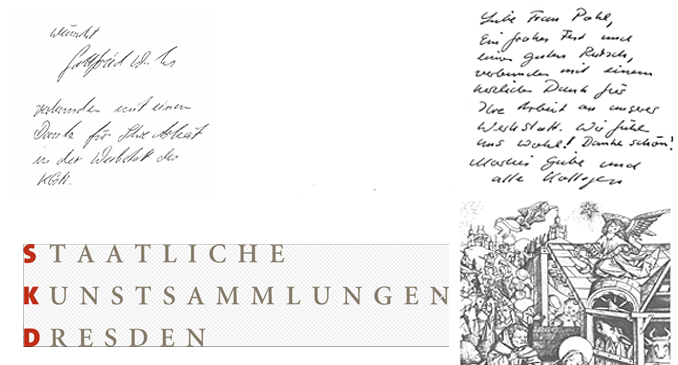 wünscht
Gottfried
verbunden mit einem
Dank für Ihre Arbeit
in der Werkstatt des
KGM.
Liebe Frau Pohl,
Ein frohes Fest und
einen guten Rutsch,
verbunden mit einem
herzlichen Dank für
Ihre Arbeit an unserer
Werkstatt. Wir fühlen
uns wohl! Danke schön!
und
alle Kollegen
STAATLICHE
KUNSTSAMMLUNGEN
DRESDEN